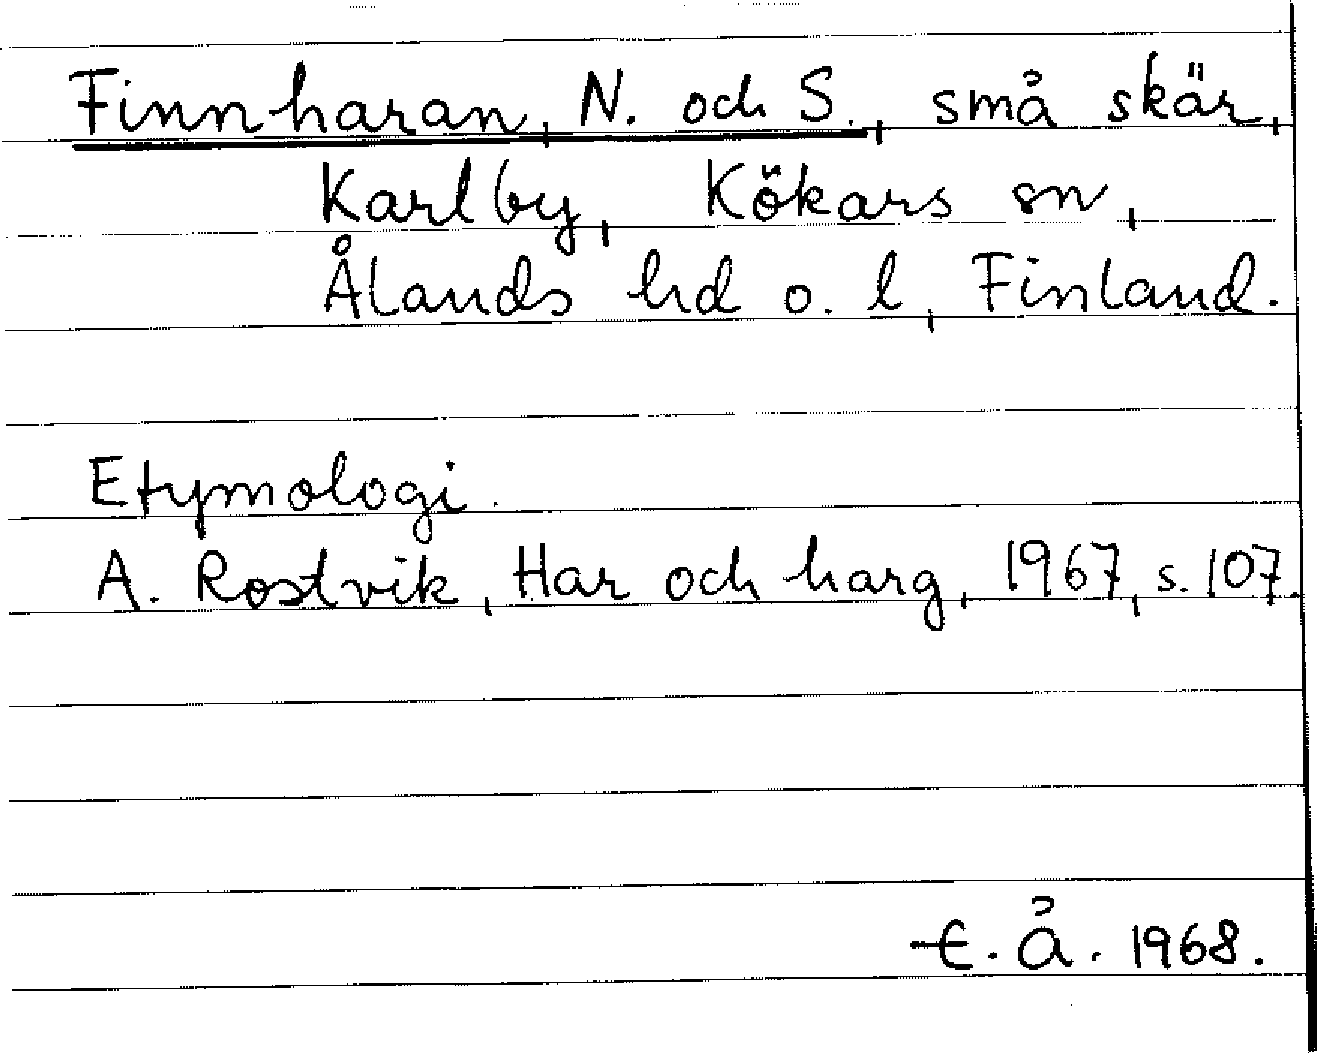 Finnharan, N. och S., små skär,
Karlby, Kökars sn,
Ålands hd o. l, Finland.
Etymologi.
A. Rostvik, Har och harg, 1967, s. 107.
E. Å. 1968.